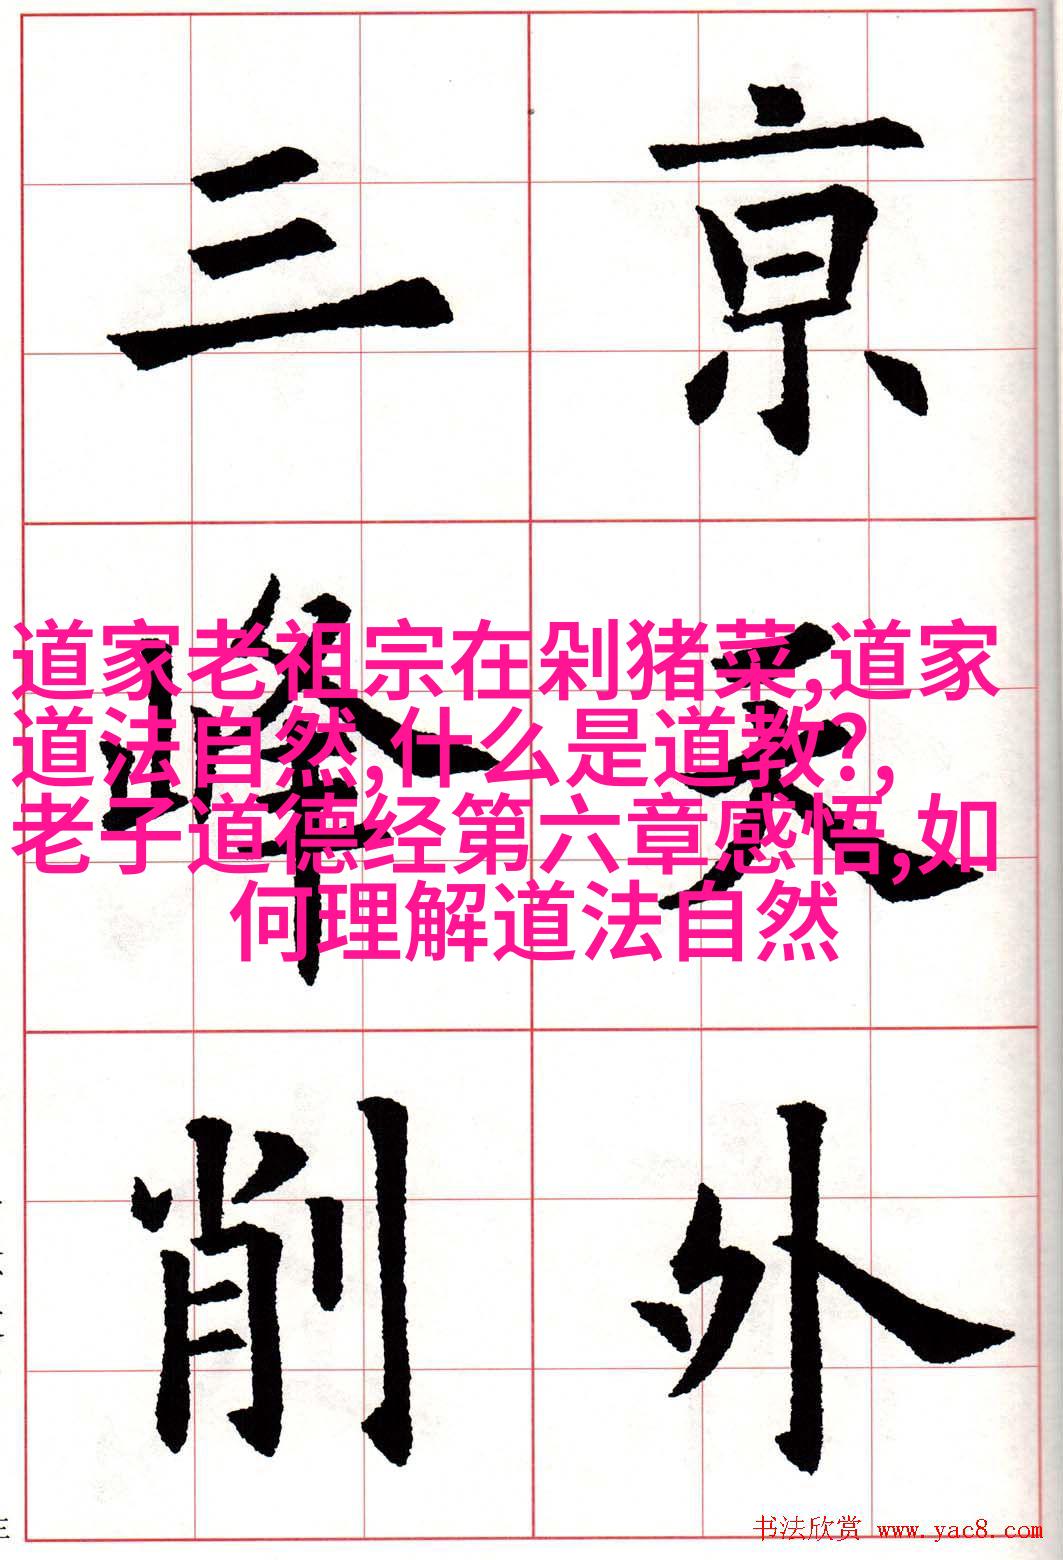 亰天外
三峰削
道家老祖宗在剁猪菜,道家
道法自然,什么是道教?,
老子道德经第六章感悟,如
何理解道法自然
书法欣赏 www.yac8.com